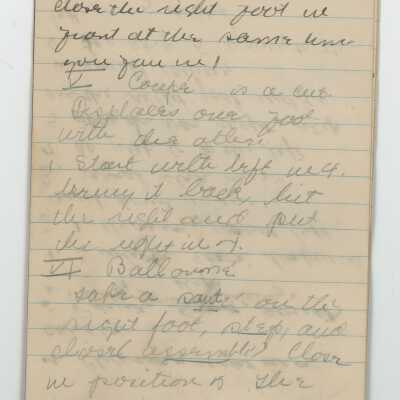 close the right foot in
front at the same time
you fan in!
V Coupé is a cut
Displaces one foot
with the other.
1 Start with left in 4.
bring it back, hit
the right and put
the right in 4.
VI Ballonné
Take a sauté on the
right foot, step, and
close
in position of the